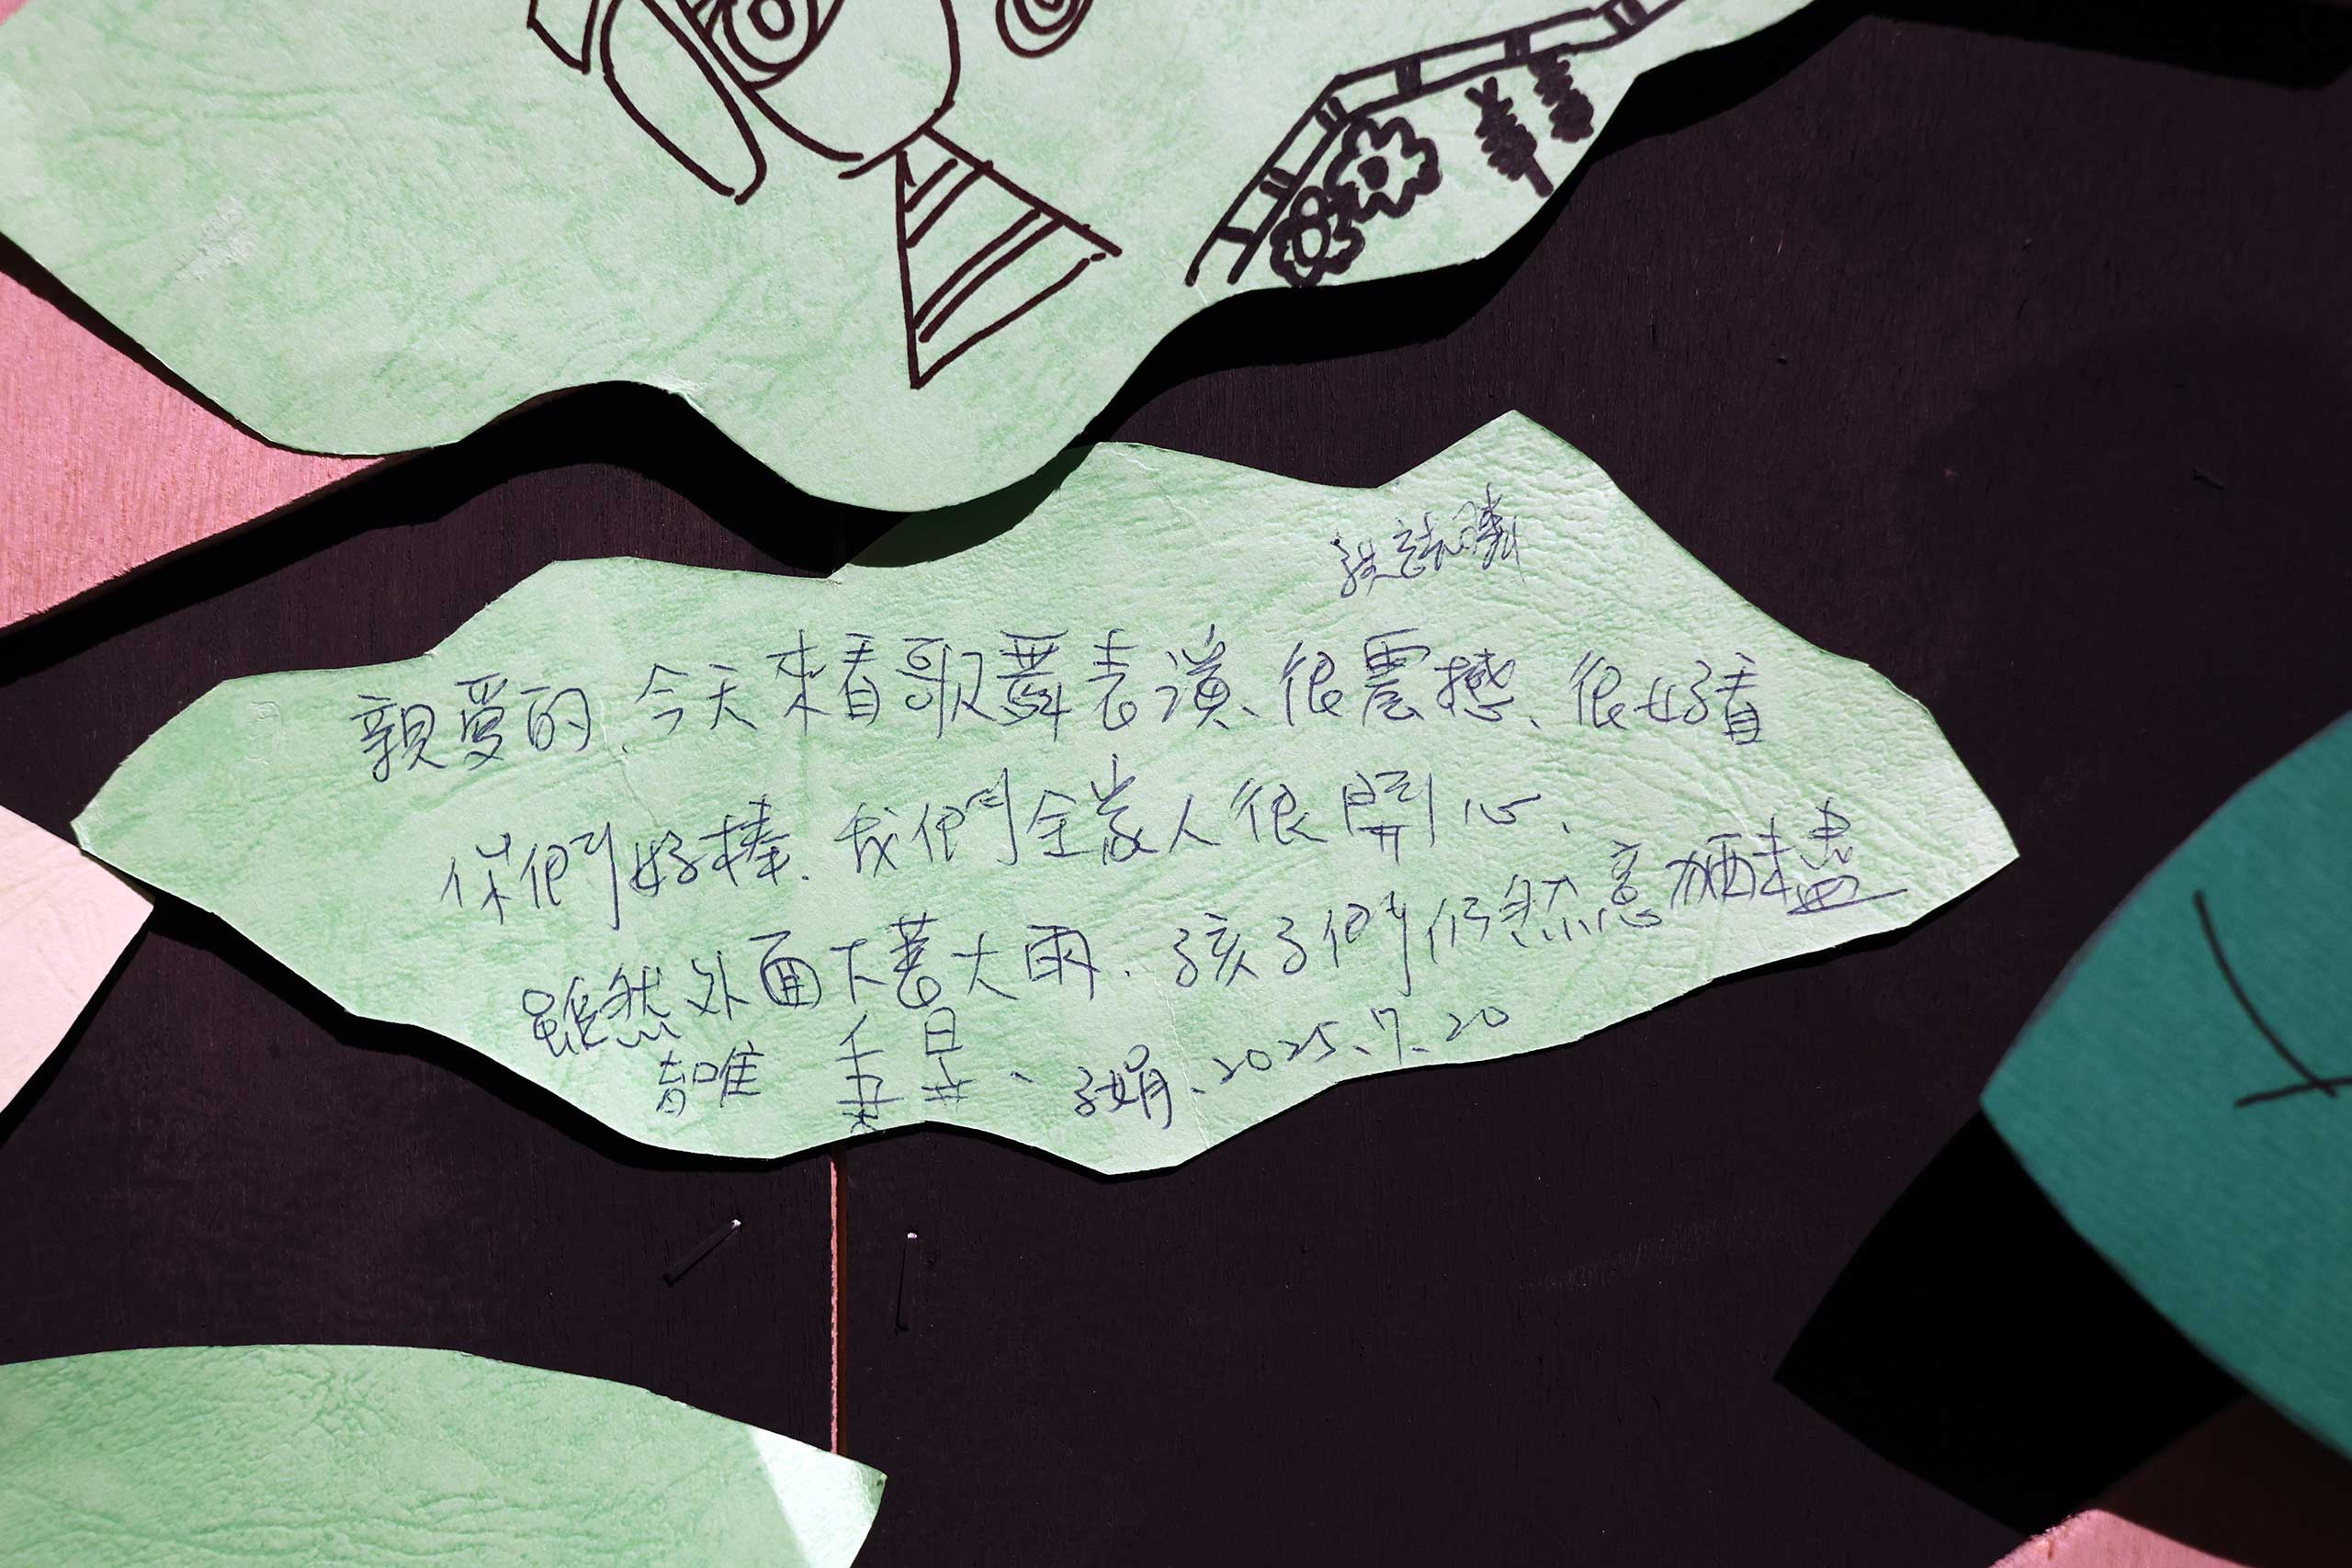 親愛的、今天來看歌舞表演、很震撼、很好看
你們好棒、我們全家人很開心、
雖然外面下著大雨、孩子們仍然意
子娟、2025.7.20